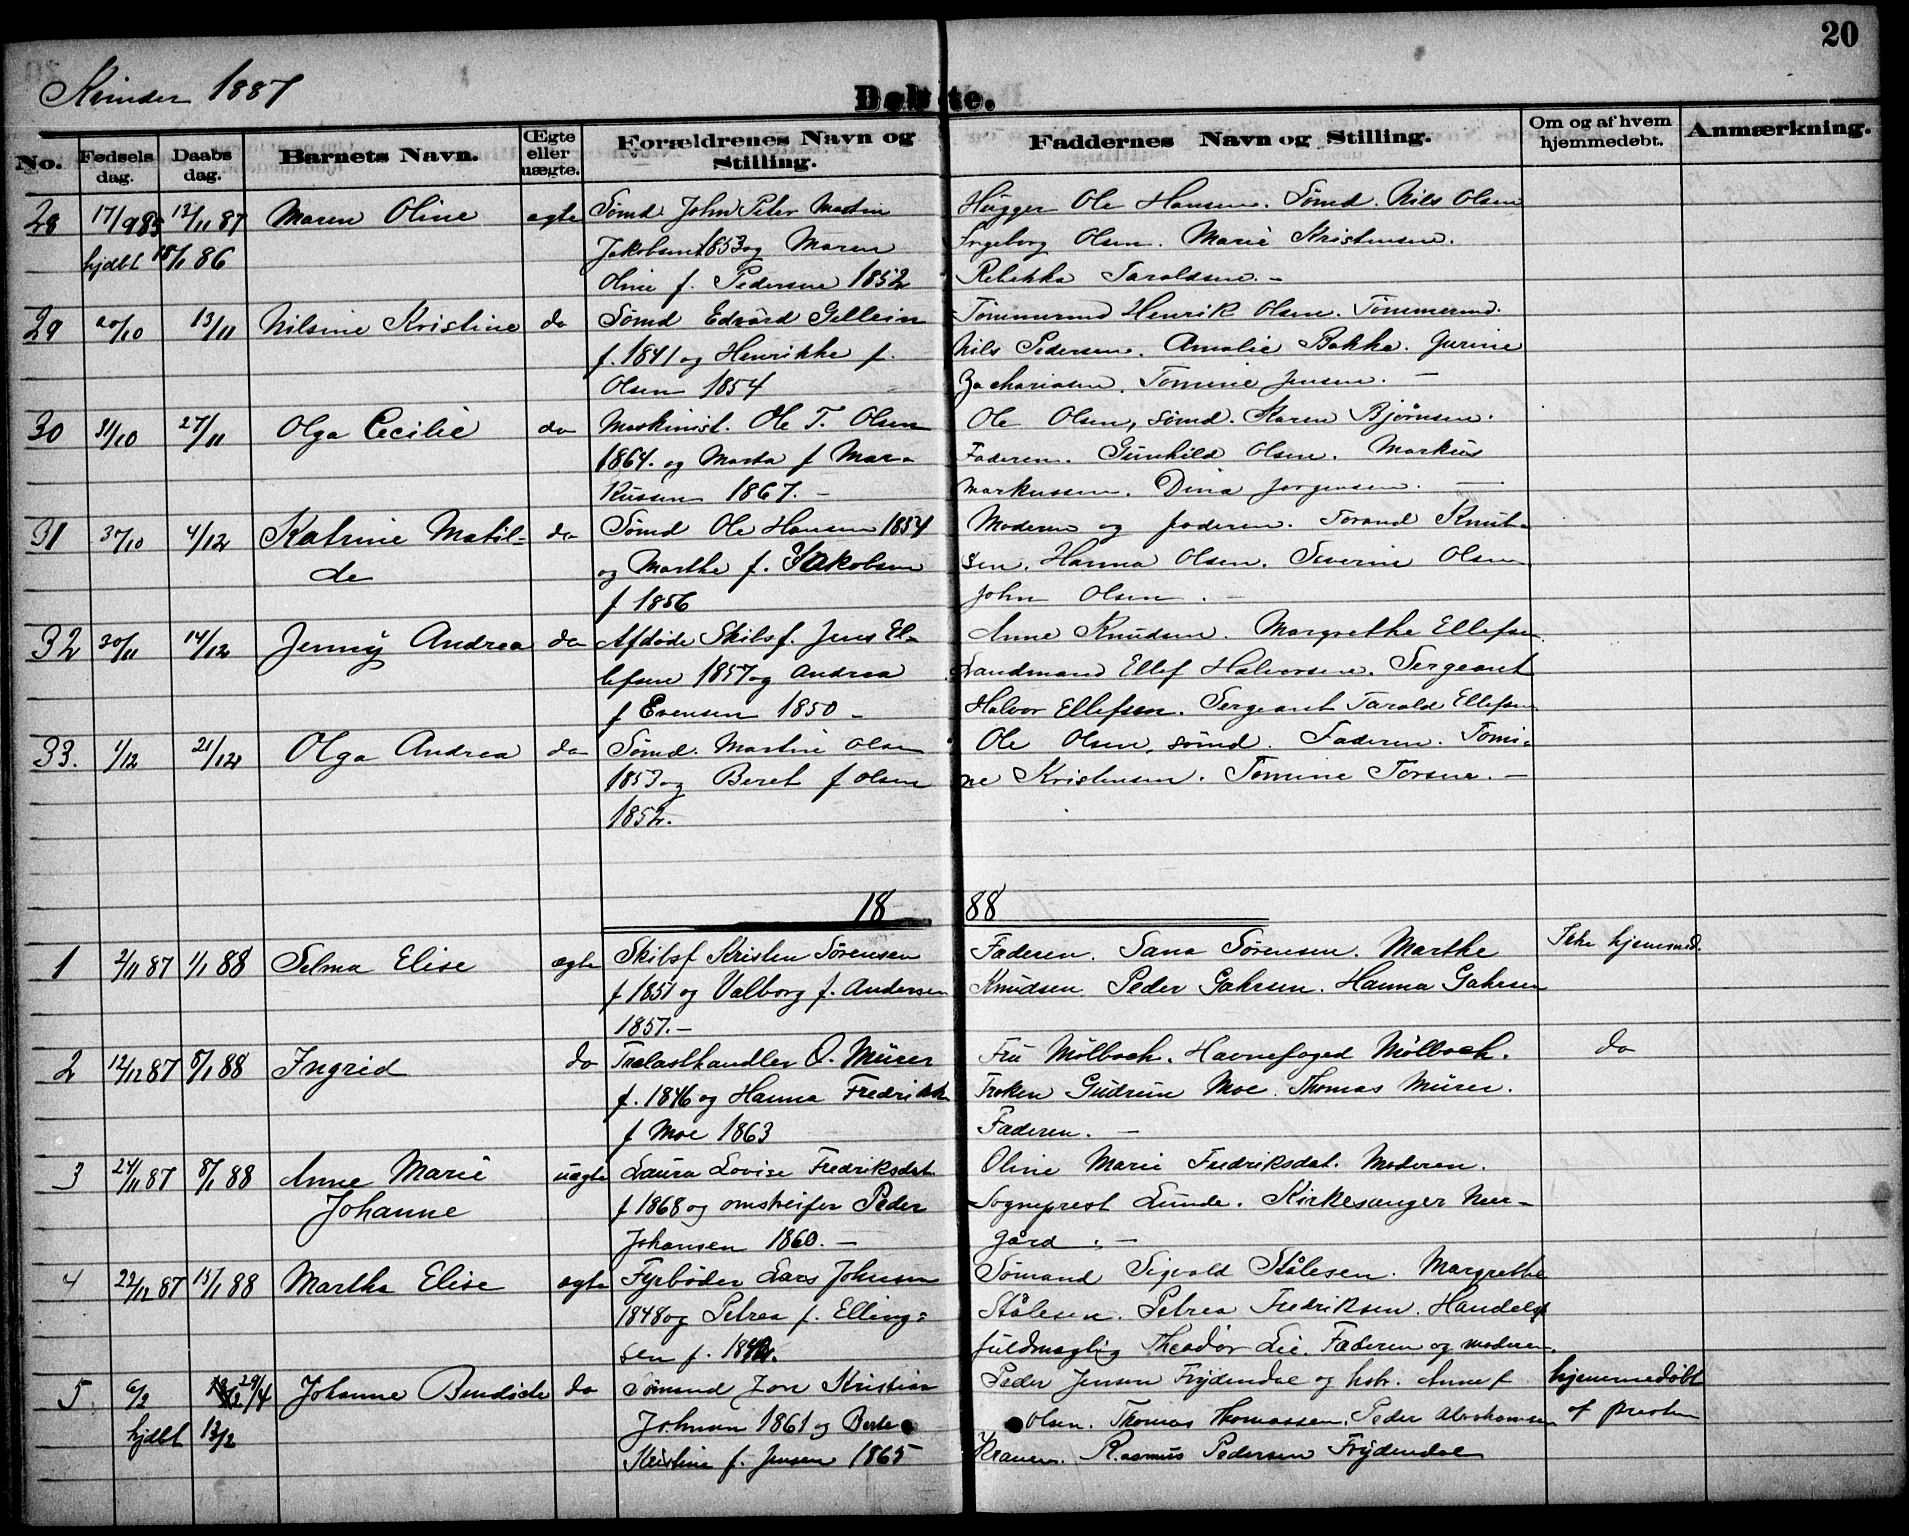 20
Kvinder 1887
Døbte.
No. Fødsels dag. Daabs dag. Barnets Navn. Ægte eller uægte. Forældrenes Navn og Stilling. Faddernes Navn og Stilling. Om og af hvem hjemmedøbt. Anmærkning.
28 17/9 85 13/11 87 Maren Oline ægte Sømd John Peter Martin Hugger Ole Hansen. Sømd. Nils Olsen
hjdbt 18/1 86 Jakobsen 1853 og Maren Ingeborg Olsen. Marie Kristensen.
Oline f. Pedersen 1852 Rebekka Taraldsen. –
29 20/10 13/11 Nilsine Kristine do Sømd Edvard Gellein Tømmermd Henrik Olsen. Tømmermd.
f. 1841 og Henrikke f. Nils Pedersen. Amalie Bakke. Gurine
Olsen 1854 Zachariasen. Tomine Jensen. –
30 31/10 27/11 Olga Cecilie do Maskinist. Ole T. Olsen Ole Olsen, sømd. Karen Bjørnsen.
1864. og Marta f Mar- Faderen. Gunhild Olsen. Markus
kussen 1867. – Markussen. Dina Jørgensen. –
31 30/10 4/12 Katrine Matil- do Sømd Ole Hansen 1854 Moderen og faderen. Torand Knut-
de og Marthe f. Jakobsen sen. Hanna Olsen. Severine Olsen
f 1856 John Olsen. –
32 30/11 14/12 Jenny Andrea do Afdøde Skibsf. Jens El- Anne Knudsen. Margrethe Ellefsen.
lefsen 1857 og Andrea Landmand Ellef Halvorsen. Sergeant
f Evensen 1850 – Halvor Ellefsen. Sergeant Tarald Ellefsen
33. 1/12 21/12 Olga Andrea do Sømd. Martin Olsen Ole Olsen, sømd. Faderen. Tomi-
1853 og Beret f Olsen ne Kristensen. Tomine Torsen. –
1852.
18 88
1 2/11 87 1/1 88 Selma Elise ægte Skibsf Kristen Sørensen Faderen. Sana Sørensen. Marthe Ikke hjemmed.
f 1851 og Valborg f. Andersen Knudsen. Peder Gahrsen. Hanna Gahrsen
1857. –
2 12/12 87 8/1 88 Ingrid do Trælasthandler O. Murer Fru Mølbach. Havnefoged Mølbach. do
f. 1846 og Hanna Fredrikke Frøken Gudrun Moe. Thomas Murer.
f Moe 1863 Faderen. –
3 24/11 87 8/1 88 Anne Marie uægte Laura Lovise Fredriksdat. Oline Marie Fredriksdat. Moderen.
Johanne f 1868 og omstreifer Peder Sogneprest Lunde. Kirkesanger Neer-
Johansen 1860. – gård. –
4 22/12 87 15/1 88 Martha Elise ægte Fyrbøder Lars Johnsen Sømand Sigvald Stålesen. Margrethe
1848 og Petrea f. Elling- Stålesen. Petrea Fredriksen. Handels
sen f. fuldmægtig Theodor Lie. Faderen og moderen.
5 6/2 29/4 Johanne Bendicte do Sømand Zore Kristian Peder Jensen Frydendal og hstr. Anne f. hjemmedøbt
hjdbt 13/2 Johnsen 1861 og Berte Olsen. Thomas Thomassen. Peder Abrahamsen af presten
Kristine f. Jensen 1865 Kranen. Rasmus Pedersen Frydendal